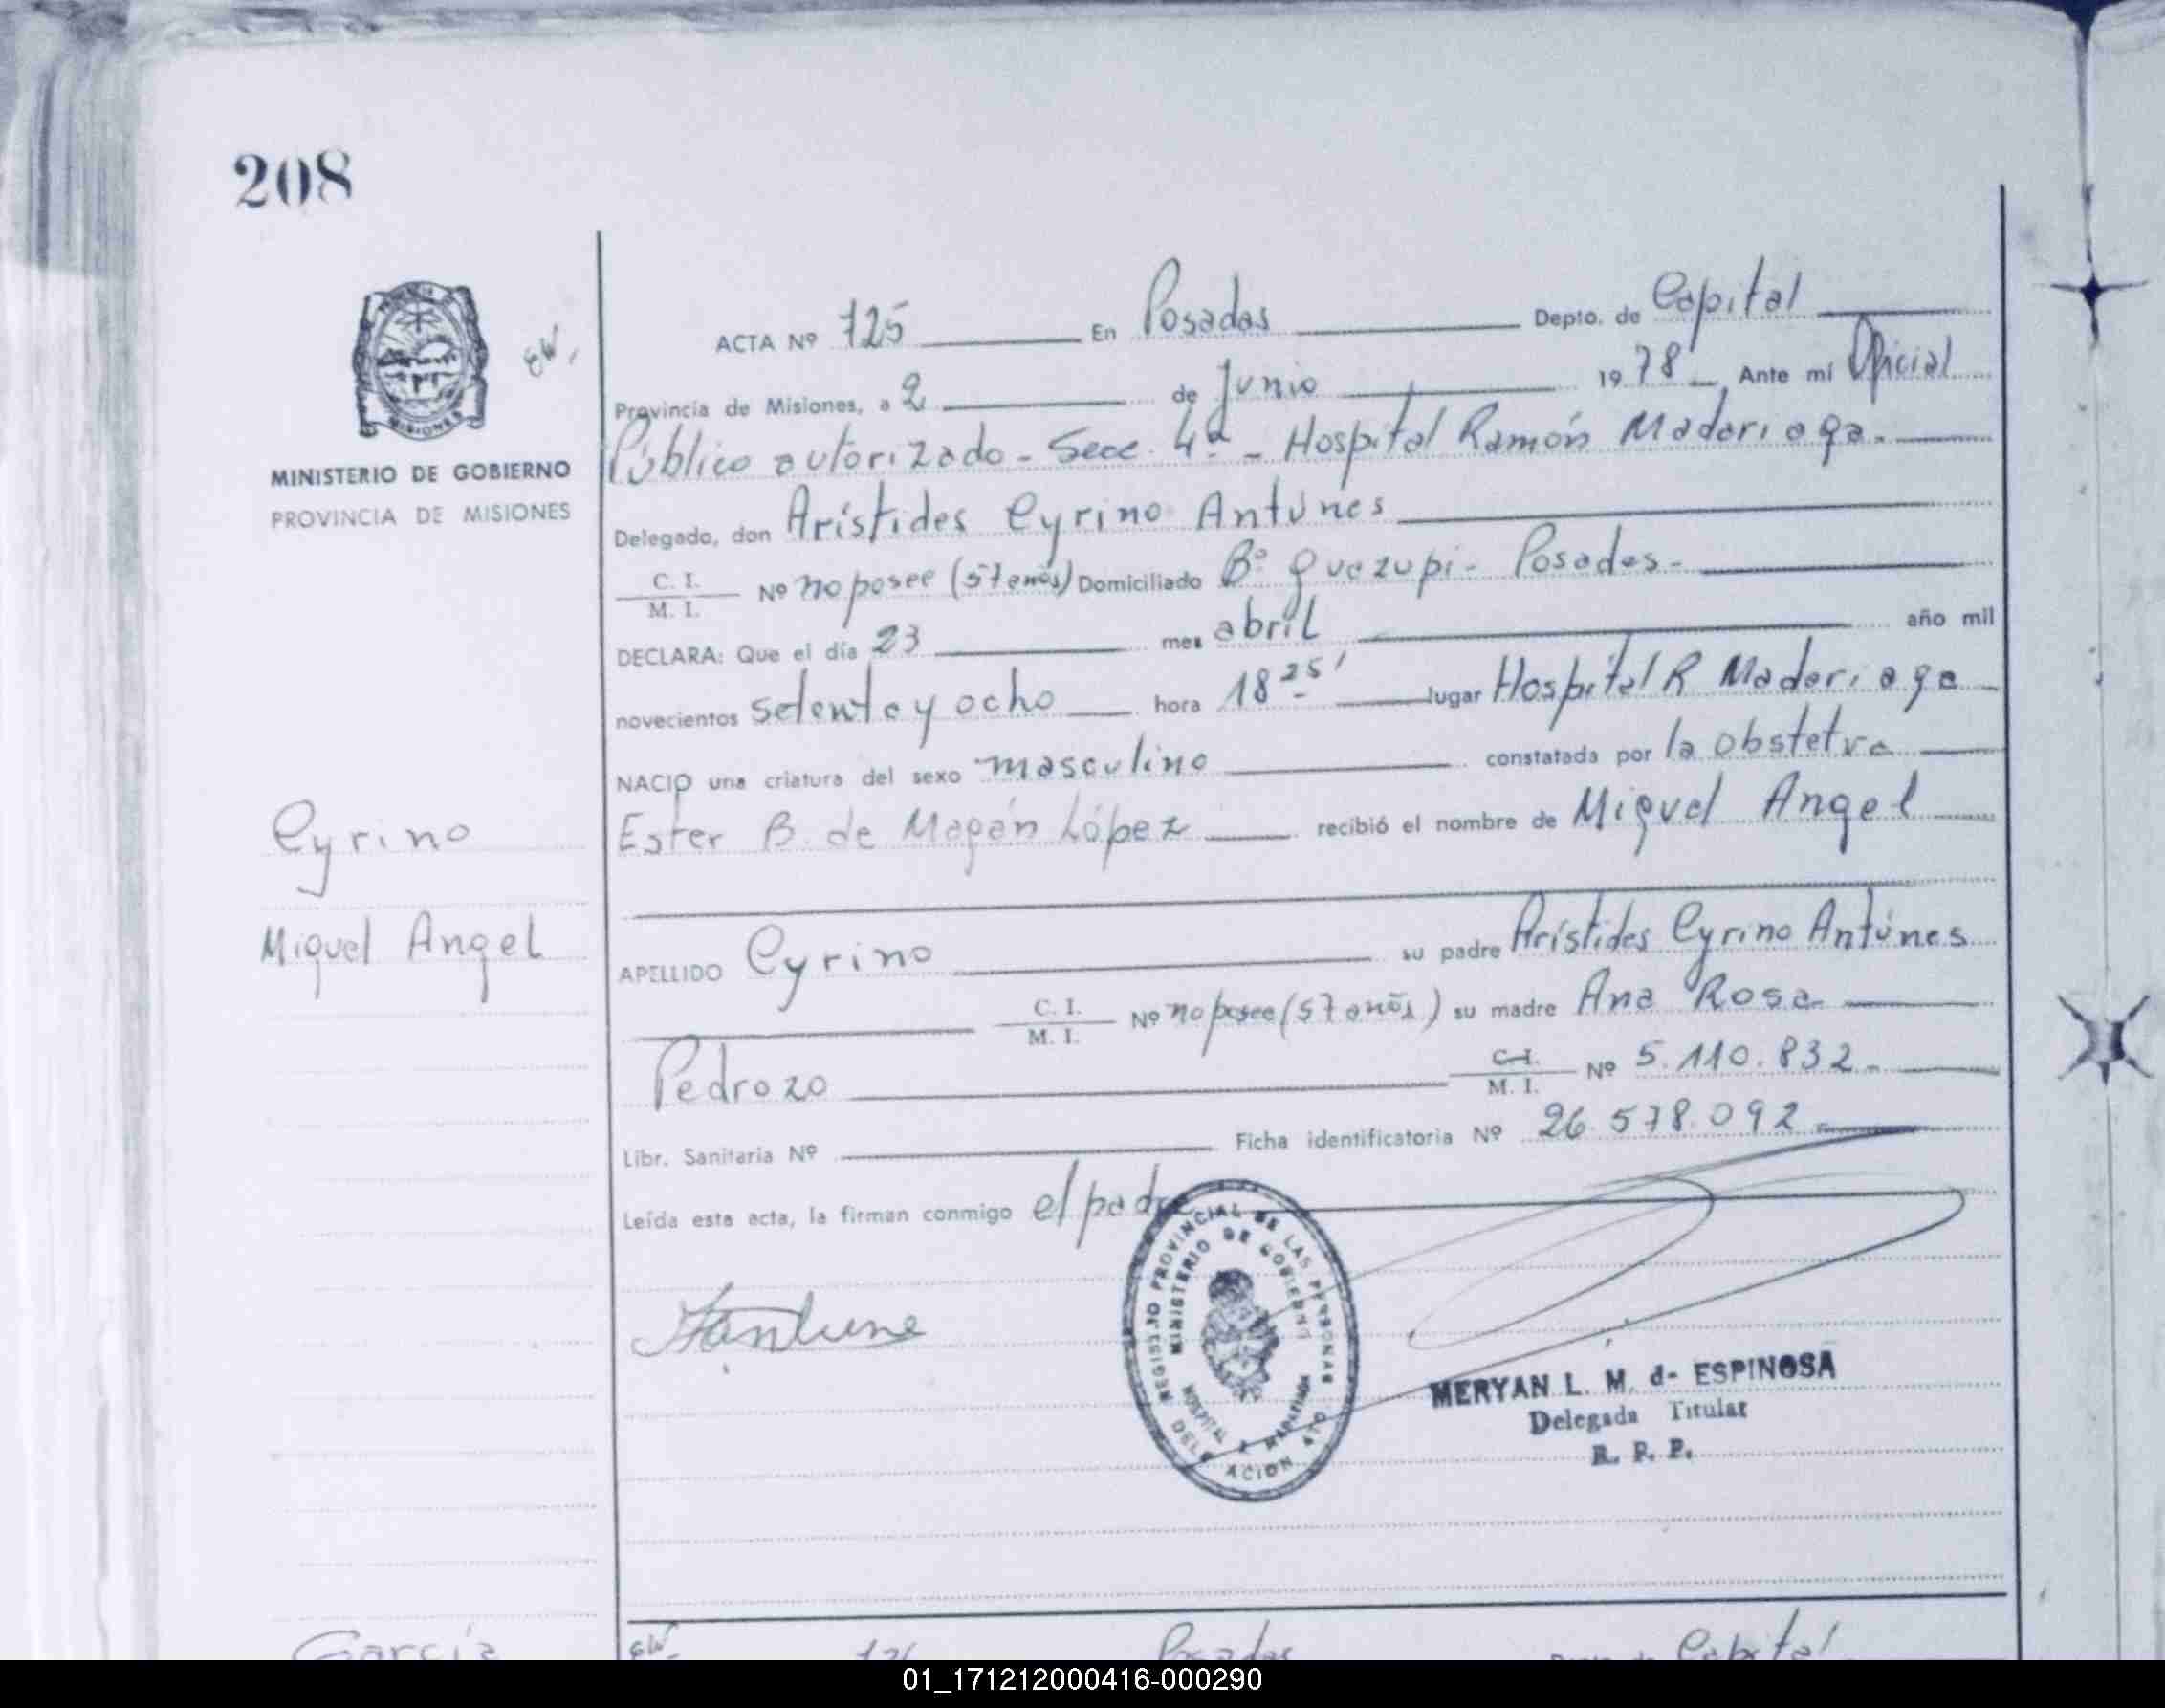 208
ACTA Nº 125 En Posadas Depto. de Capital
Provincia de Misiones, a 2 de Junio 1978 Ante mí Oficial
Público autorizado - Secc. 4ª - Hospital Ramón Madariaga.
MINISTERIO DE GOBIERNO
PROVINCIA DE MISIONES
Delegado, don Arístides Cyrino Antúnes
C. I.
M. I.
Nº no posee (57 años) Domiciliado Bº Yvazupi - Posadas -
DECLARA: Que el día 23 mes abril año mil
novecientos setenta y ocho hora 18 25' lugar Hospital R Madariaga
NACIO una criatura del sexo masculino constatada por la obstetra
Ester B. de Magán López recibió el nombre de Miguel Angel
Cyrino
Miguel Angel
APELLIDO Cyrino su padre Arístides Cyrino Antúnes
C. I.
M. I.
Nº no posee (57 años) su madre Ana Rosa
Pedrozo C. I.
M. I.
Nº 5.110.832.-
Libr. Sanitaria Nº Ficha identificatoria Nº 26.578.092.
Leída esta acta, la firman conmigo el padre
REGISTRO PROVINCIAL DE LAS PERSONAS
MINISTERIO DE GOBIERNO
HOSPITAL R. MADARIAGA
MERYAN L. M. d- ESPINOSA
Delegada Titular
R. P. P.
García Posadas Capital
01_171212000416-000290